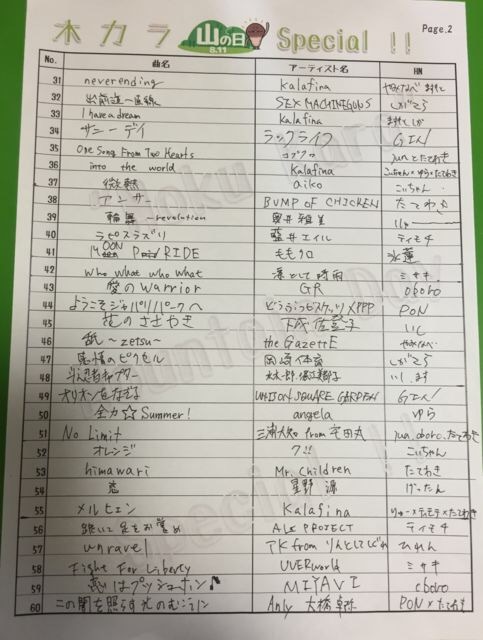 木カラ 山の日 8.11 Special !! Page.2
No. 曲名 アーティスト名 HN
31 neverending Kalafina
32 出前道一直線 SEX MACHINEGUNS しがてろ
33 I have a dream Kalafina
34 サニーデイ ラックライフ GIN
35 One Song From Two Hearts コブクロ junとたてわき
36 into the world Kalafina
37 微熱 aiko こぃちゃん
38 アンサー BUMP OF CHICKEN たてわき
39 輪舞-revolution 奥井雅美
40 ラピスラズリ 藍井エイル ティモテ
41 MOON PRIDE ももクロ 水蓮
42 who what who what 凛として時雨 ミサキ
43 愛のWarrior GR oboro
44 ようこそジャパリパークへ どうぶつビスケッツ×PPP PON
45 花のささやき 下成佐登子
46 舐〜zetsu〜 the GazettE
47 感情のピクセル 岡崎体育 しがてろ
48 斗忍者キャプター 水木一郎 堀江美都子
49 オリオンをなぞる UNISON SQUARE GARDEN GIN
50 全力☆Summer! angela ゆら
51 No Limit 三浦大知 from 宇田丸 jun.oboro.たてわき
52 オレンジ 7!! こぃちゃん
53 himawari Mr.Children たてわき
54 恋 星野源 げったん
55 メルヒェン Kalafina りゅー×ティモテ×たてわき
56 跪いて足をお嘗め ALI PROJECT ティモテ
57 unravel TK from りんとしてしぐれ
58 Fight For Liberty UVERworld ミサキ
59 恋いはプッシュホン♪ MIYAVI oboro
60 この闇を照らす光のむこうに Anly 大橋卓弥 PON×たてわき